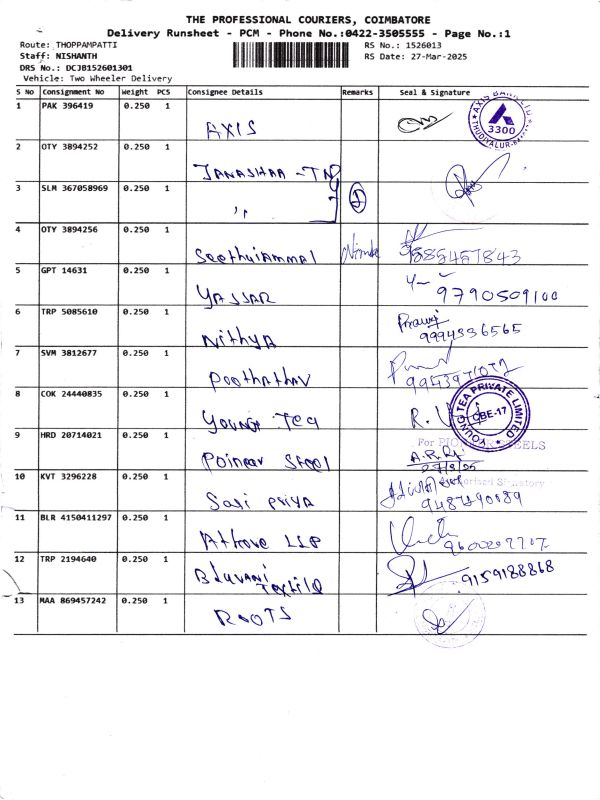 THE PROFESSIONAL COURIERS, COIMBATORE
Delivery Runsheet - PCM - Phone No.:0422-3505555 - Page No.:1
Route: THOPPAMPATTI
RS No.: 1526013
Staff: NISHANTH
RS Date: 27-Mar-2025
DRS No.: DCJB152601301
Vehicle: Two Wheeler Delivery
S No Consignment No Weight PCS Consignee Details Remarks Seal & Signature
1 PAK 396419 0.250 1 AXIS
AXIS BANK LTD
3300
THUDIYALUR
2 OTY 3894252 0.250 1
3 SLM 367058969 0.250 1 ,,
4 OTY 3894256 0.250 1
5 GPT 14631 0.250 1 YASSAR
9790509100
6 TRP 5085610 0.250 1 Nithya
9994336565
7 SVM 3812677 0.250 1
8 COK 24440835 0.250 1 Young Tea
YOUNG TEA PRIVATE LIMITED
CBE-17
9 HRD 20714021 0.250 1 Poineer Steel
10 KVT 3296228 0.250 1 Sasi Priya
11 BLR 4150411297 0.250 1 LLP
12 TRP 2194640 0.250 1 Textile
9159188868
13 MAA 869457242 0.250 1 ROOTS